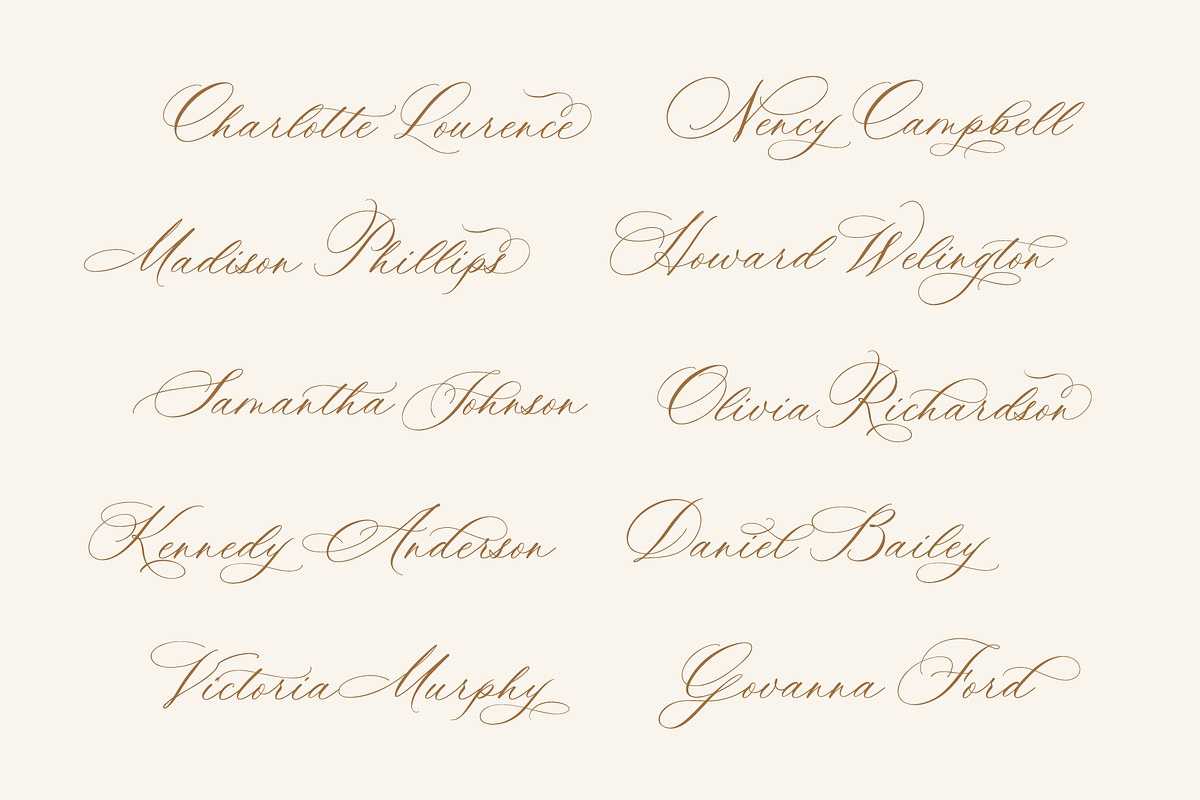 Charlotte Lourence Nency Campbell
Madison Phillips Howard Welington
Samantha Johnson Olivia Richardson
Kennedy Anderson Daniel Bailey
Victoria Murphy Govanna Ford